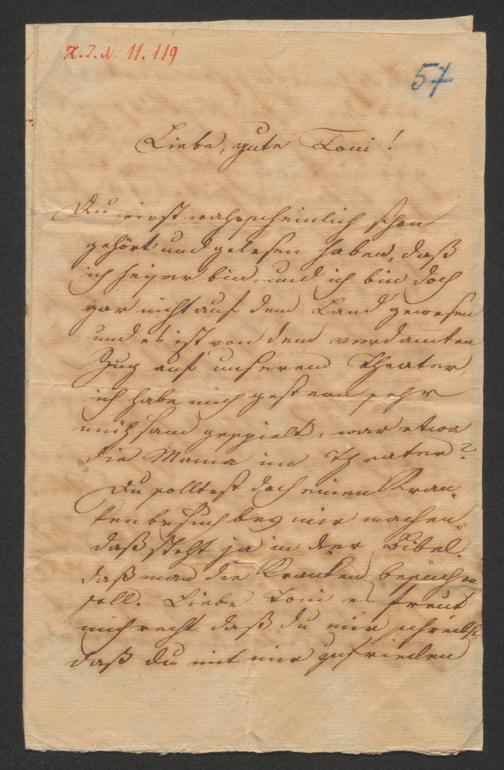 H.I.N. 11.119
57
Liebe, gute Toni!
Du wirst wahrscheinlich schon
gehört und gelesen haben, daß
ich heiser bin, und ich bin doch
gar nicht auf dem Land gewesen
und es ist von dem verdamten
Zug auf unserem Theater
ich habe mich gestern sehr
mühsam gespielt, war etwa
die Mama im Theater?
Du solltest doch einen Kran-
kenbesuch bey mir machen,
daß steht ja in der Bibel.
daß man die Kranken besuchen
soll. Liebe Toni es freut
mich recht daß du mir schreibst
daß du mit mir zufrieden